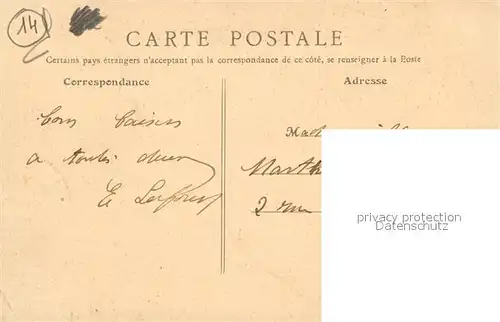 14
CARTE POSTALE
Certains pays étrangers n'acceptant pas la correspondance de ce côté, se renseigner à la Poste
Correspondance
Adresse
Bons Baisers
à toutes deux
E
Mad
Marth
2 rue
privacy protection
Datenschutz